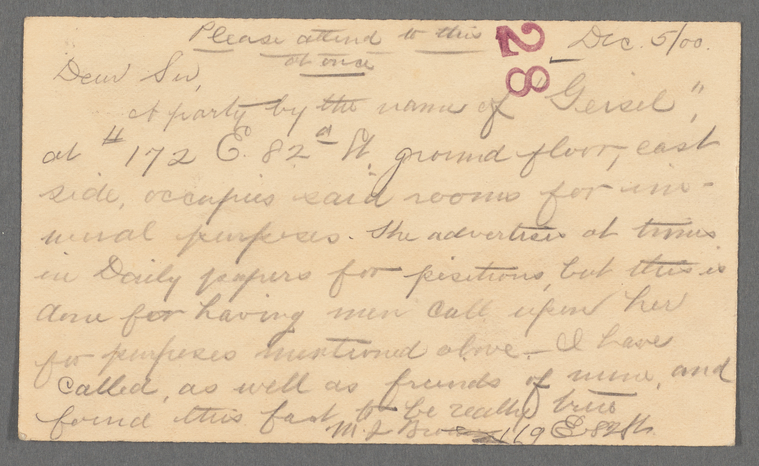 Please attend to this
at once
28
Dec. 5/00.
Dear Sir,
A party by the name of "Geisel",
at # 172 E. 82d St, ground floor, east
side, occupies said rooms for im-
moral purposes. She advertises at times
in Daily papers for positions, but this is
done for having men call upon her
for purposes mentioned above. – I have
called, as well as friends of mine, and
found this fact to be really true
M. 169 E 82 St.